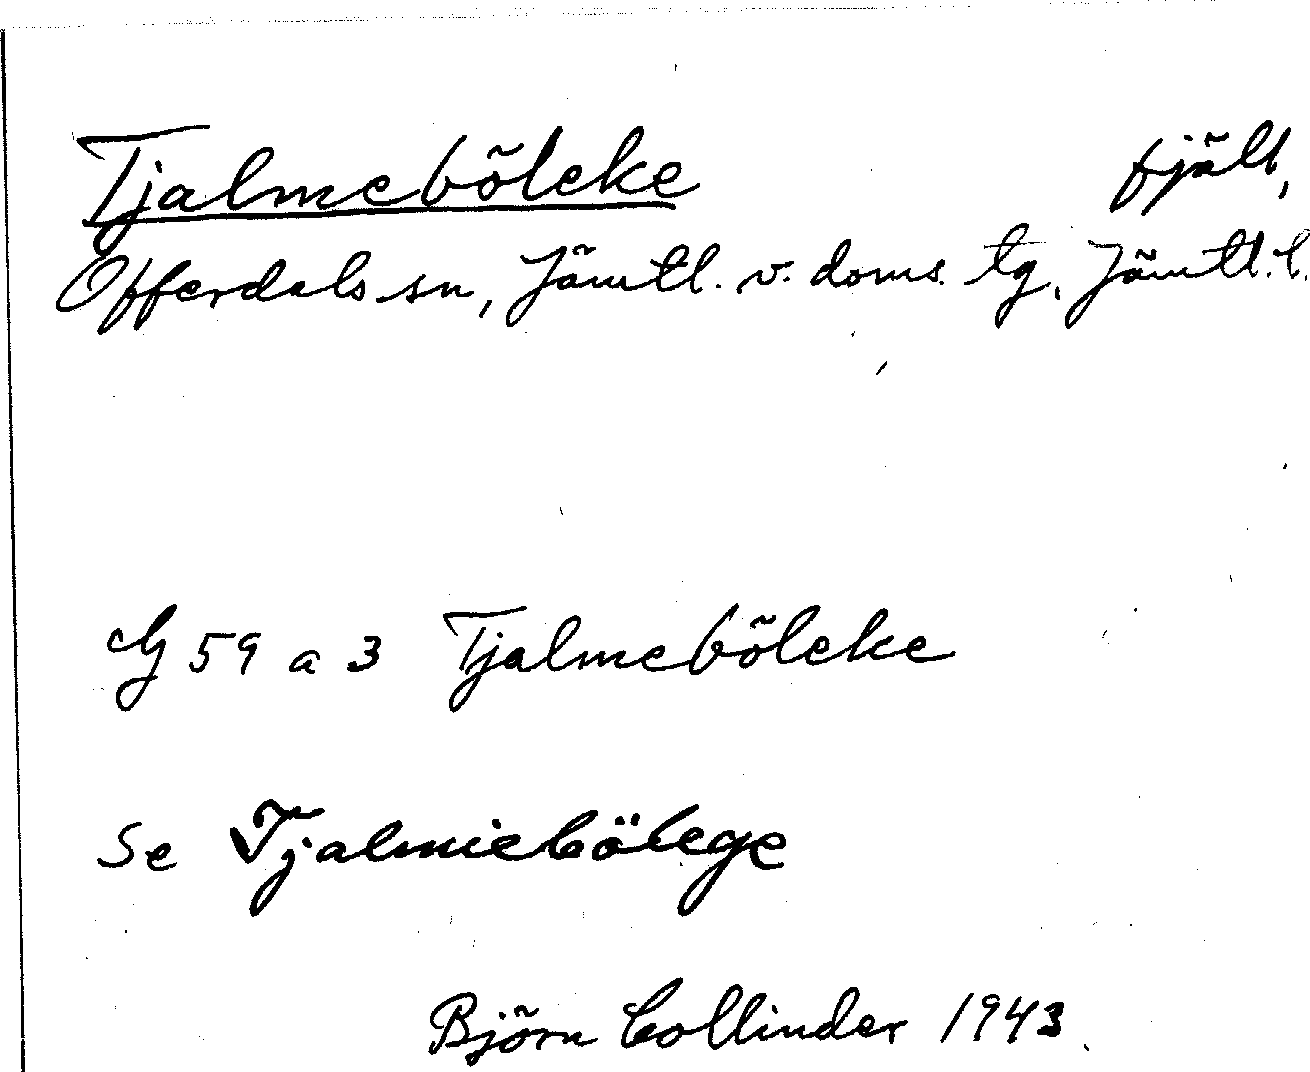 Tjalmebõleke fjäll,
Offerdals sn, Jämtl. v. doms. tg, Jämtl. l.
59 a 3 Tjalmebõleke
Se Tjalmiebölege
Björn Collinder 1943.